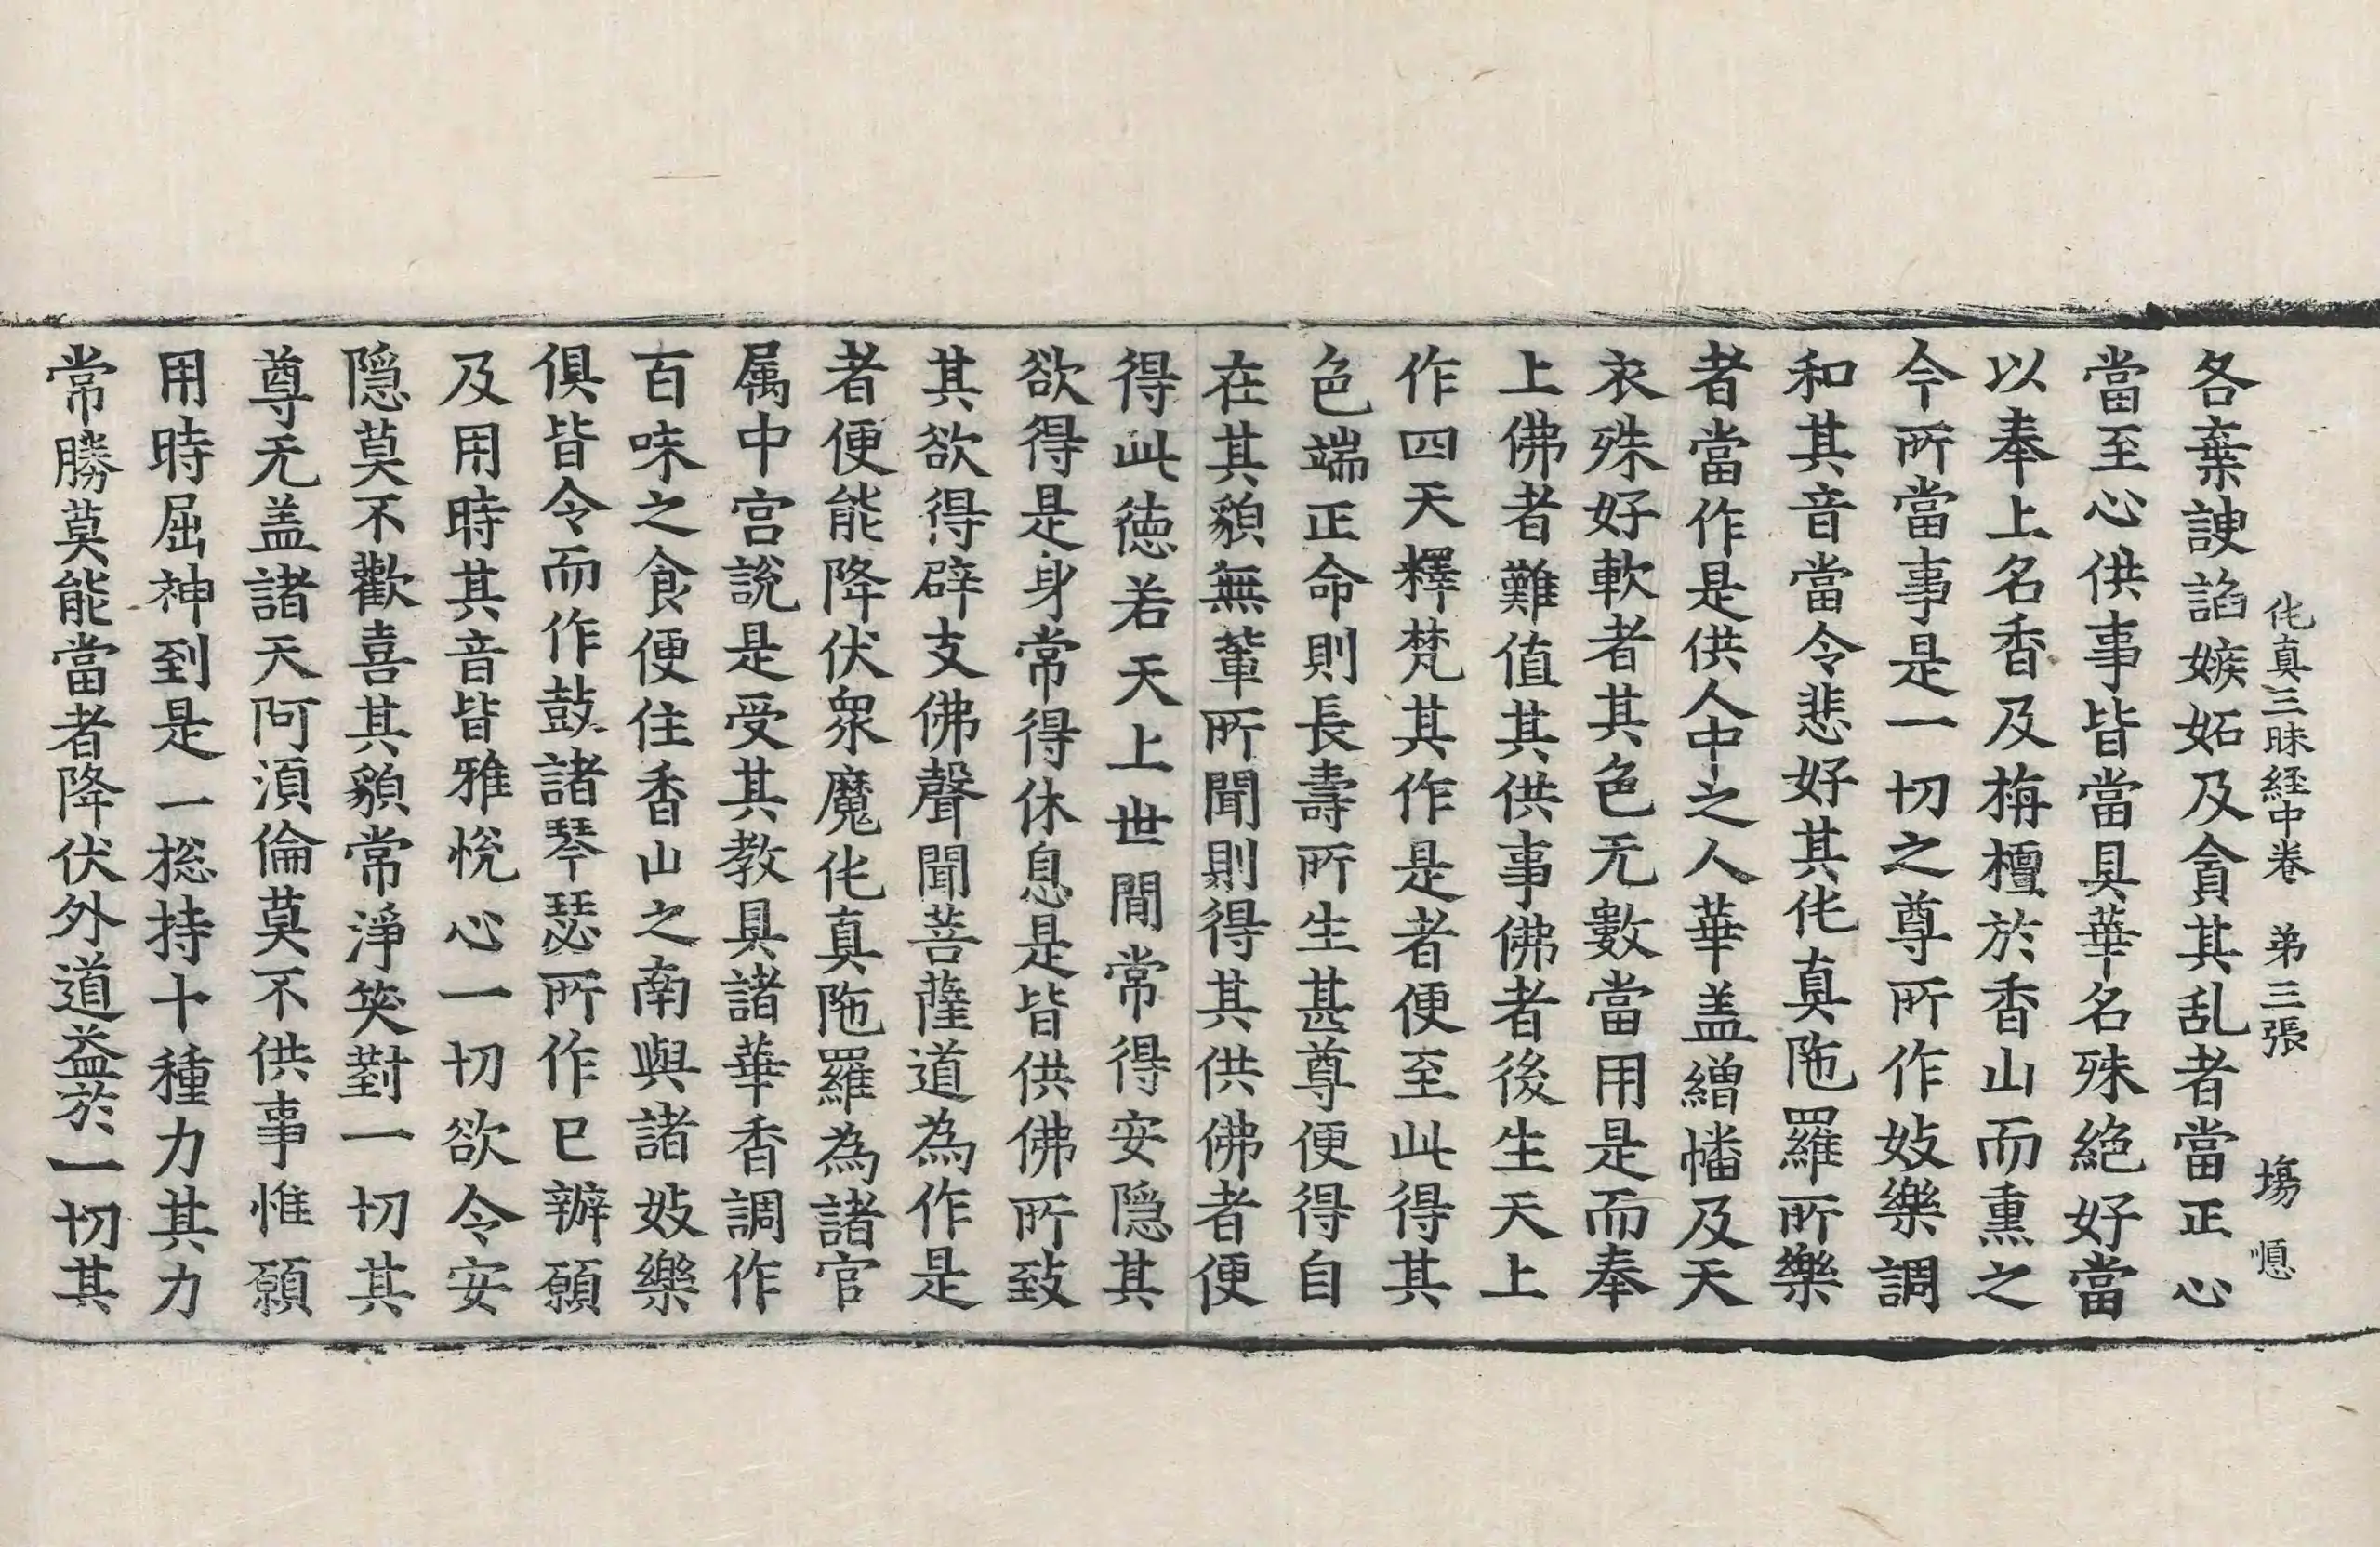 佗真三昧経中卷 弟三張 塲 愼
各棄諛諂嫉妬及貪其乱者當正心
當至心供事皆當具華名殊絕好當
以奉上名香及栴檀於香山而熏之
今所當事是一切之尊所作妓樂調
和其音當令悲好其佗真陁羅所樂
者當作是供人中之人華盖繒幡及天
衣殊好軟者其色无數當用是而奉
上佛者難值其供事佛者後生天上
作四天釋梵其作是者便至此得其
色端正命則長壽所生甚尊便得自
在其貌無輩所聞則得其供佛者便
得此徳若天上世間常得安隱其
欲得是身常得休息是皆供佛所致
其欲得辟支佛聲聞菩薩道為作是
者便能降伏衆魔佗真陁羅為諸官
属中宮說是受其教具諸華香調作
百味之食便住香山之南與諸妓樂
俱皆令而作鼓諸琴瑟所作已辦願
及用時其音皆雅悅心一切欲令安
隠莫不歡喜其貌常淨笑對一切其
尊无盖諸天阿湏倫莫不供事惟願
用時屈神到是一揔持十種力其力
常勝莫能當者降伏外道益於一切其